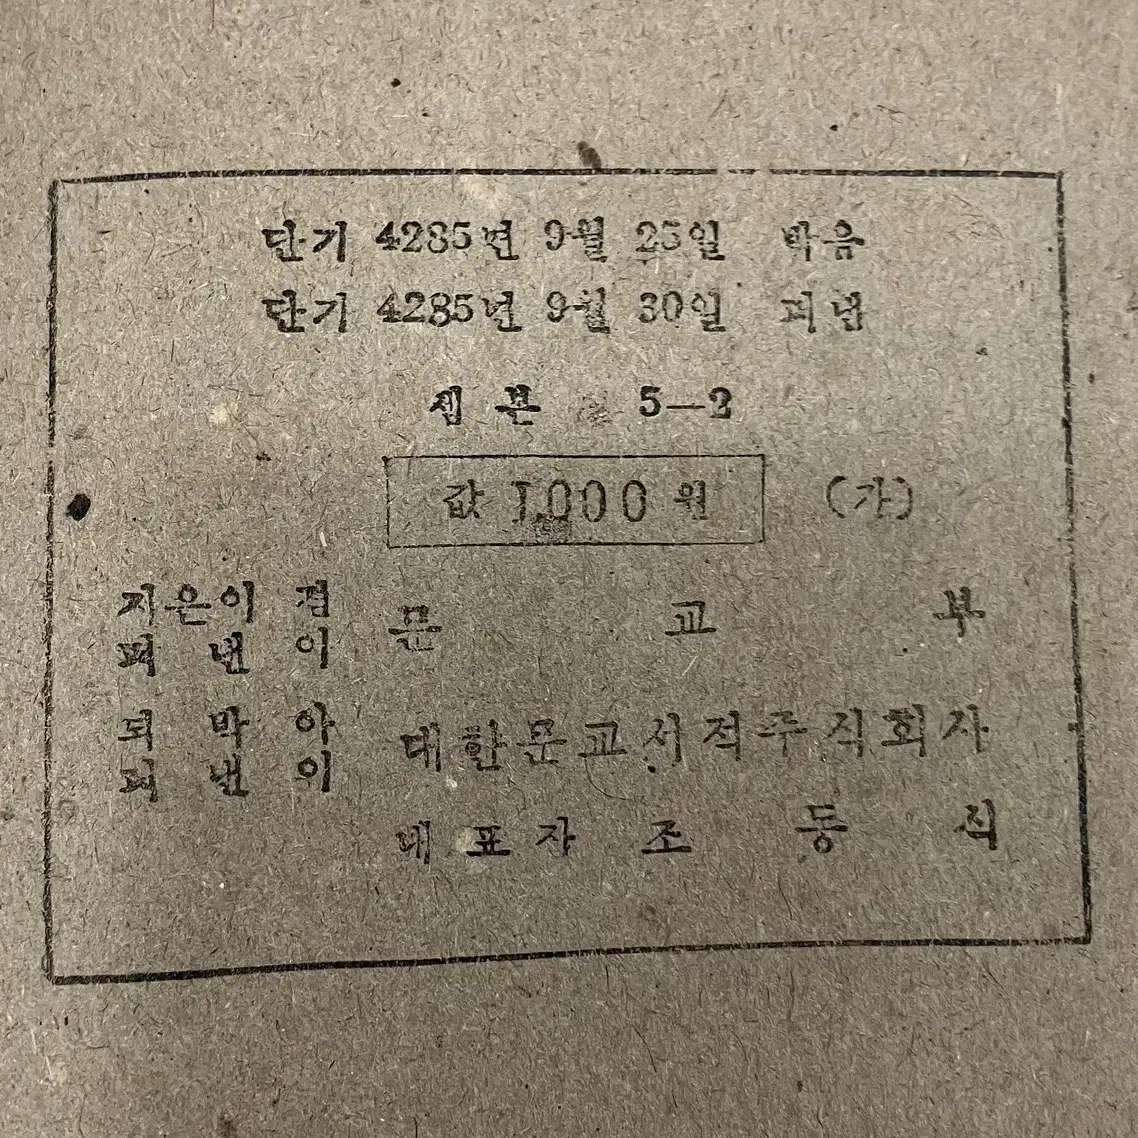 단기 4285년 9월 25일 박음
단기 4285년 9월 30일 펴냄
5—2
값 1,000 원 (가)
지은이 겸
펴 낸 이
문 교 부
되 박 아
펴 낸 이
대한문교서적주식회사
대 표 자 조 동 식